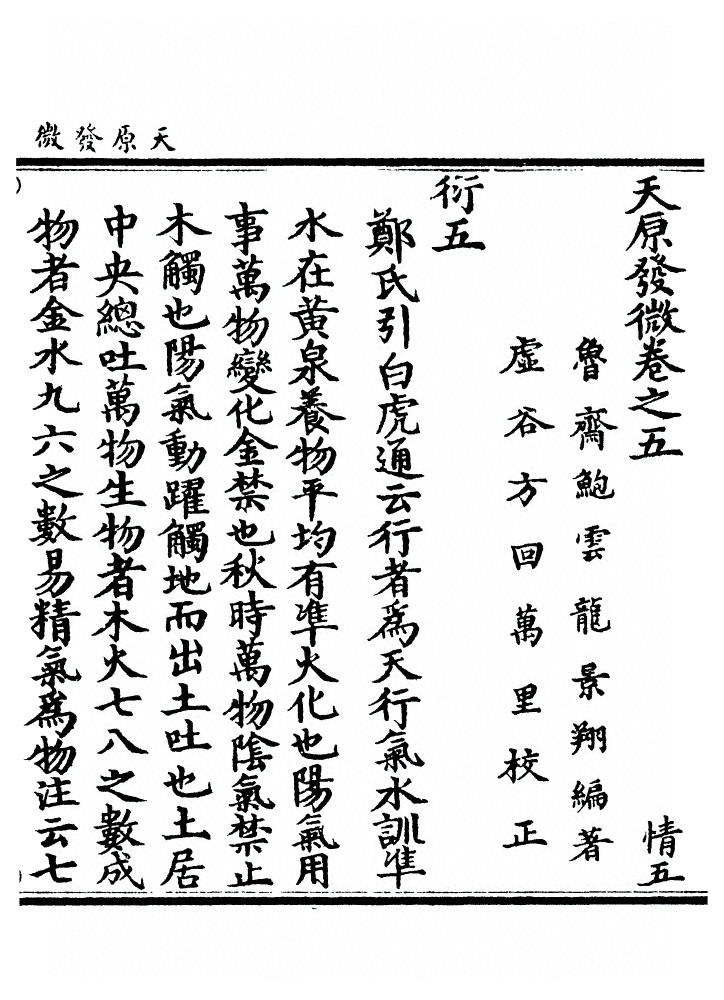 天原發微
天原發微卷之五 情五
魯齋鮑雲龍景翔編著
虛谷方回萬里校正
衍五
鄭氏引白虎通云行者為天行氣水訓準
水在黃泉養物平均有準火化也陽氣用
事萬物變化金禁也秋時萬物陰氣禁止
木觸也陽氣動躍觸地而出土吐也土居
中央總吐萬物生物者木火七八之數成
物者金水九六之數易精氣為物注云七